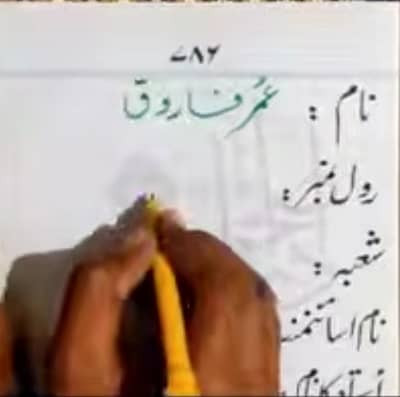 ۷۸۶
نام : عمر فاروق
رول نمبر :
شعبہ :
نام اسائنمنٹ
استاد کا نام